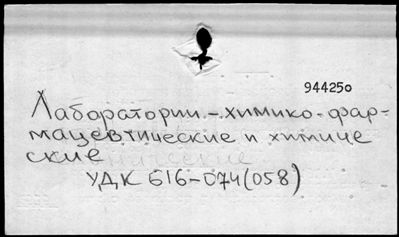 944250
Лаборатории - химико-фар-
мацевтические и химиче
ские
УДК 616-074(058)